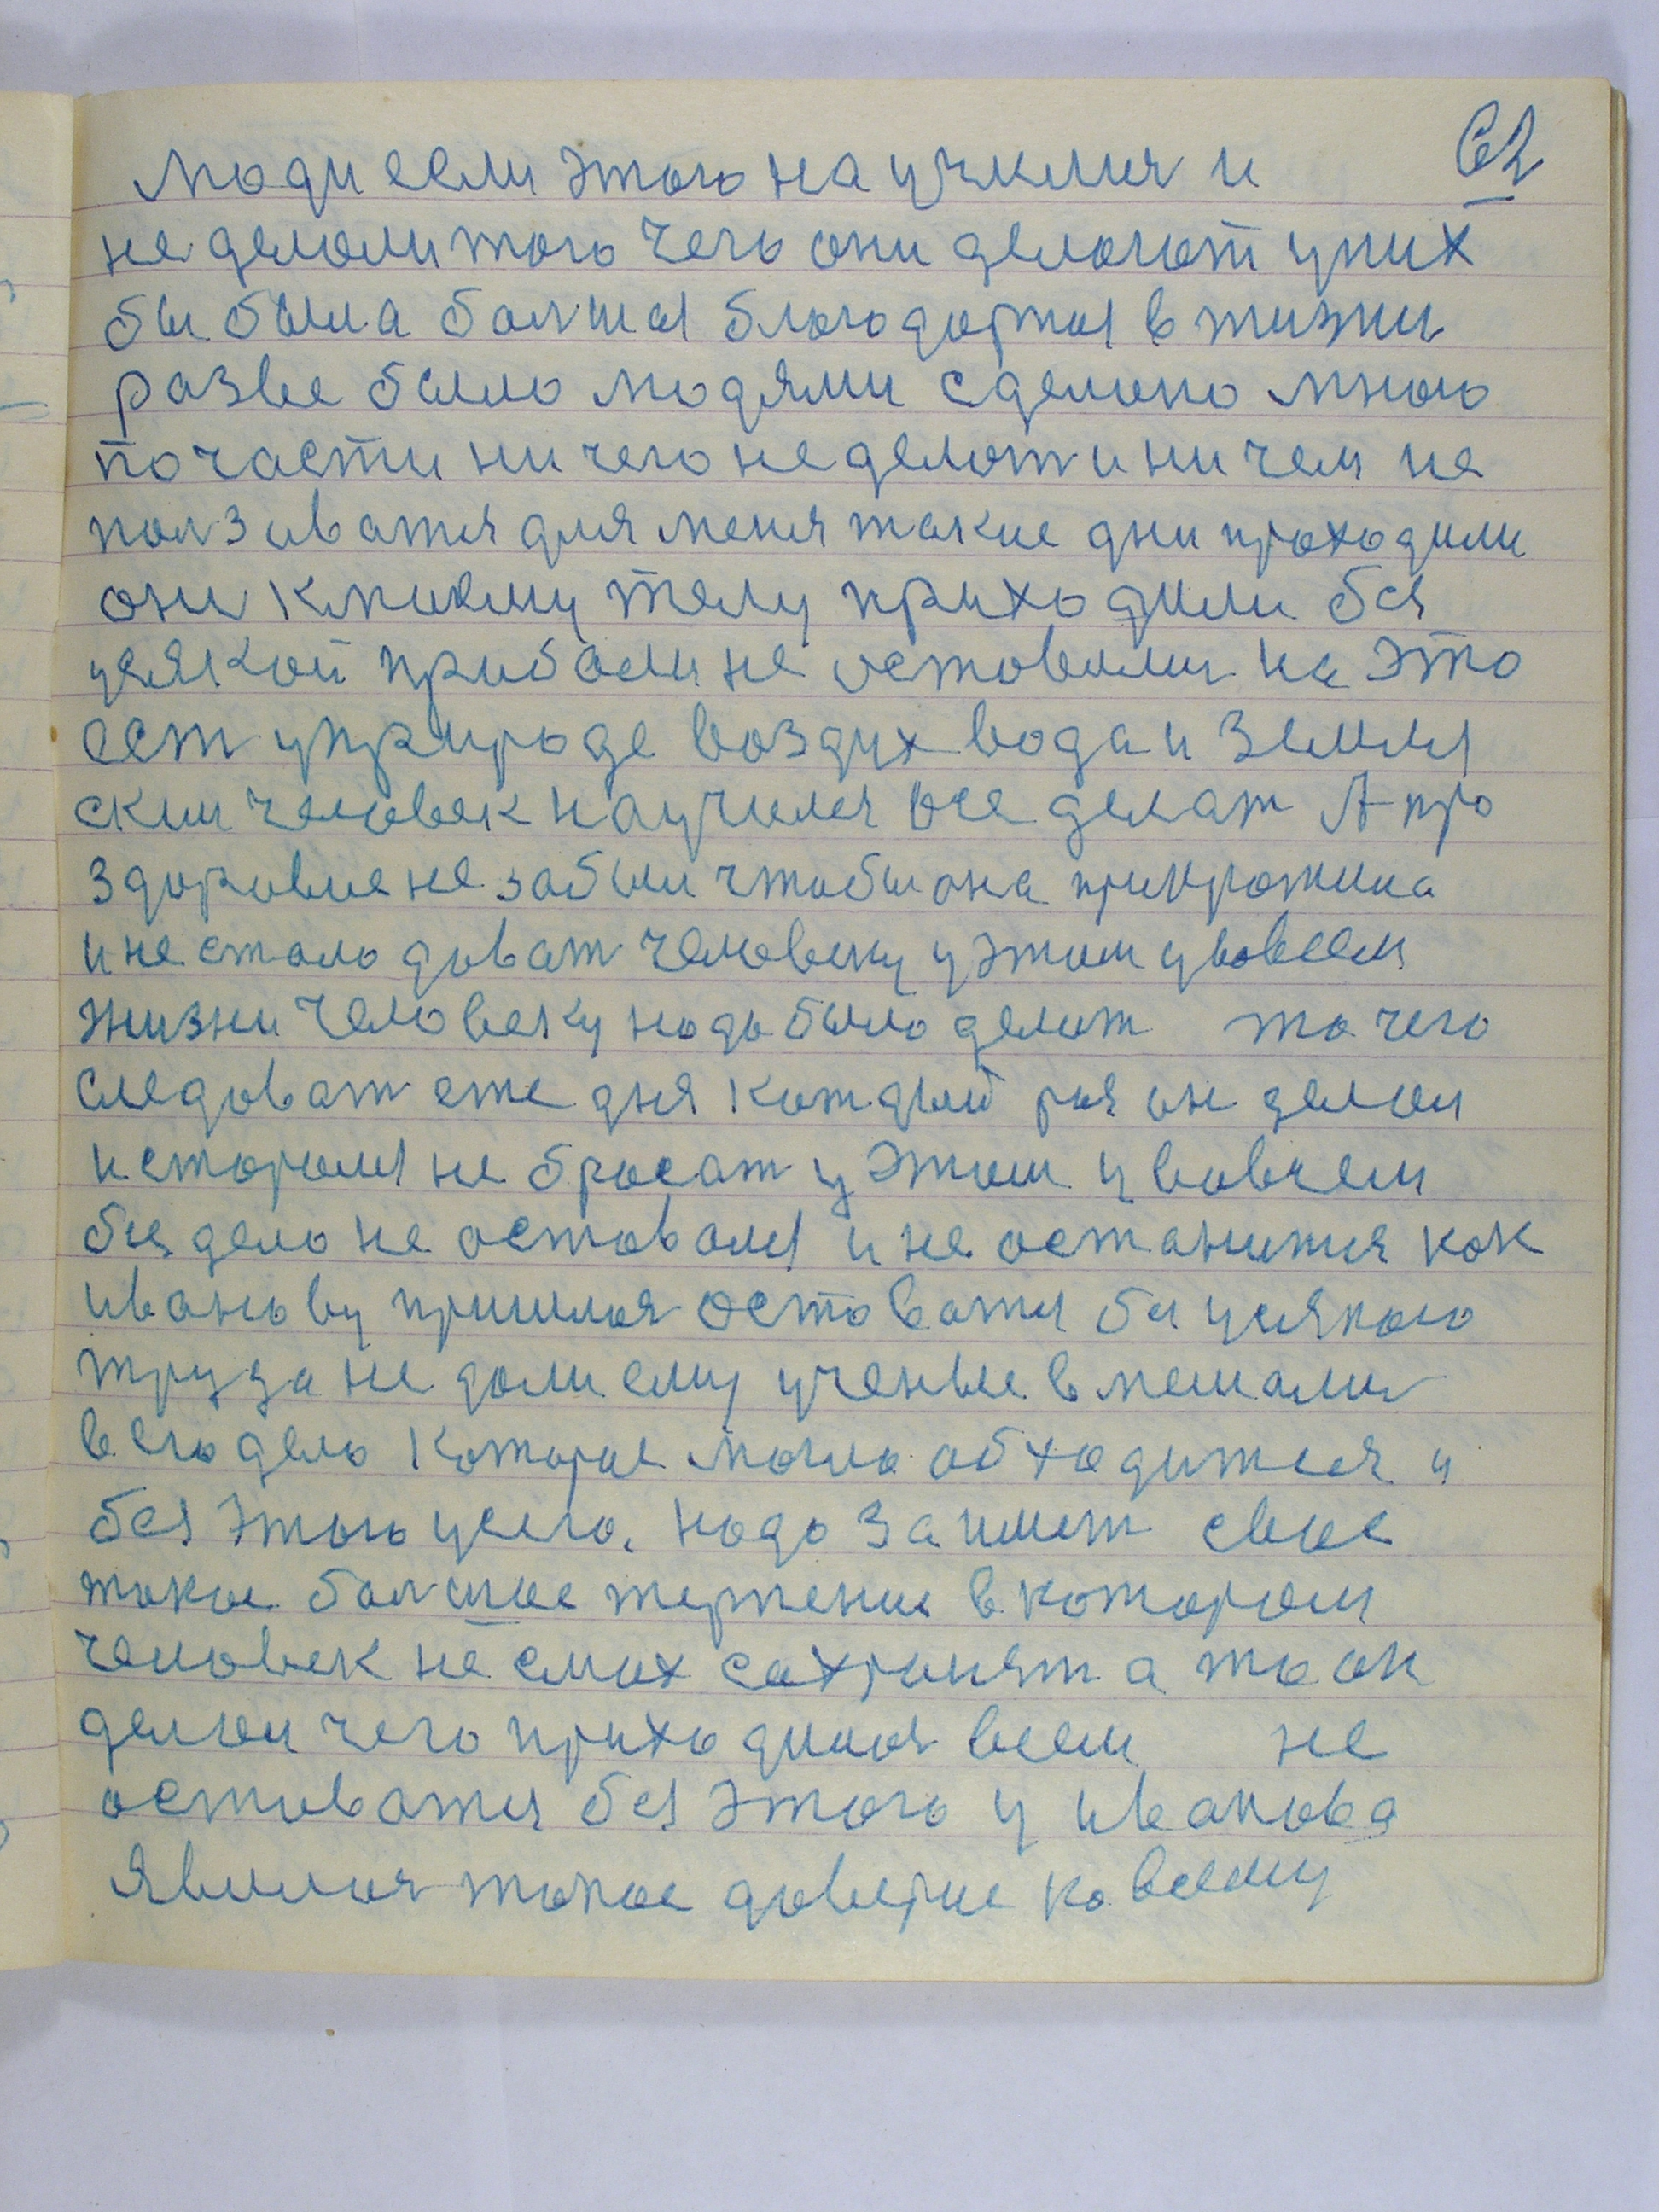 62
люди если этого научился и
не делали того чего они делогот у них
бы была болшая благодоржия в жизни
разве было людями сделоно много
по части ничего не делот и ни чем не
ползиватся для меня такие дни проходили
они к моему телу приходили без
усякой приболи не остовили на это
ест у природе воздух вода и земля
ским человек научился все делат А про
здоровие не забыли чтобы она прикротила
и не стало доват человеку у этом у во всем
жизни человеку надо было делат то чего
следоват еже дня каждый раз он делал
и старался не бросат у этом у вовчем
без дело не оставался и не останится как
иванову пришлося оставатся без усякого
труда не дали ему ученые вмешали
в его дело которое могло обходится и
без этого усего. надо заимет свое
такое болшое терпение в котором
человек не смох сахранят а то он
делал чего приходилося всем не
оставатся без этого у иванова
явилося такое доверие ко всему